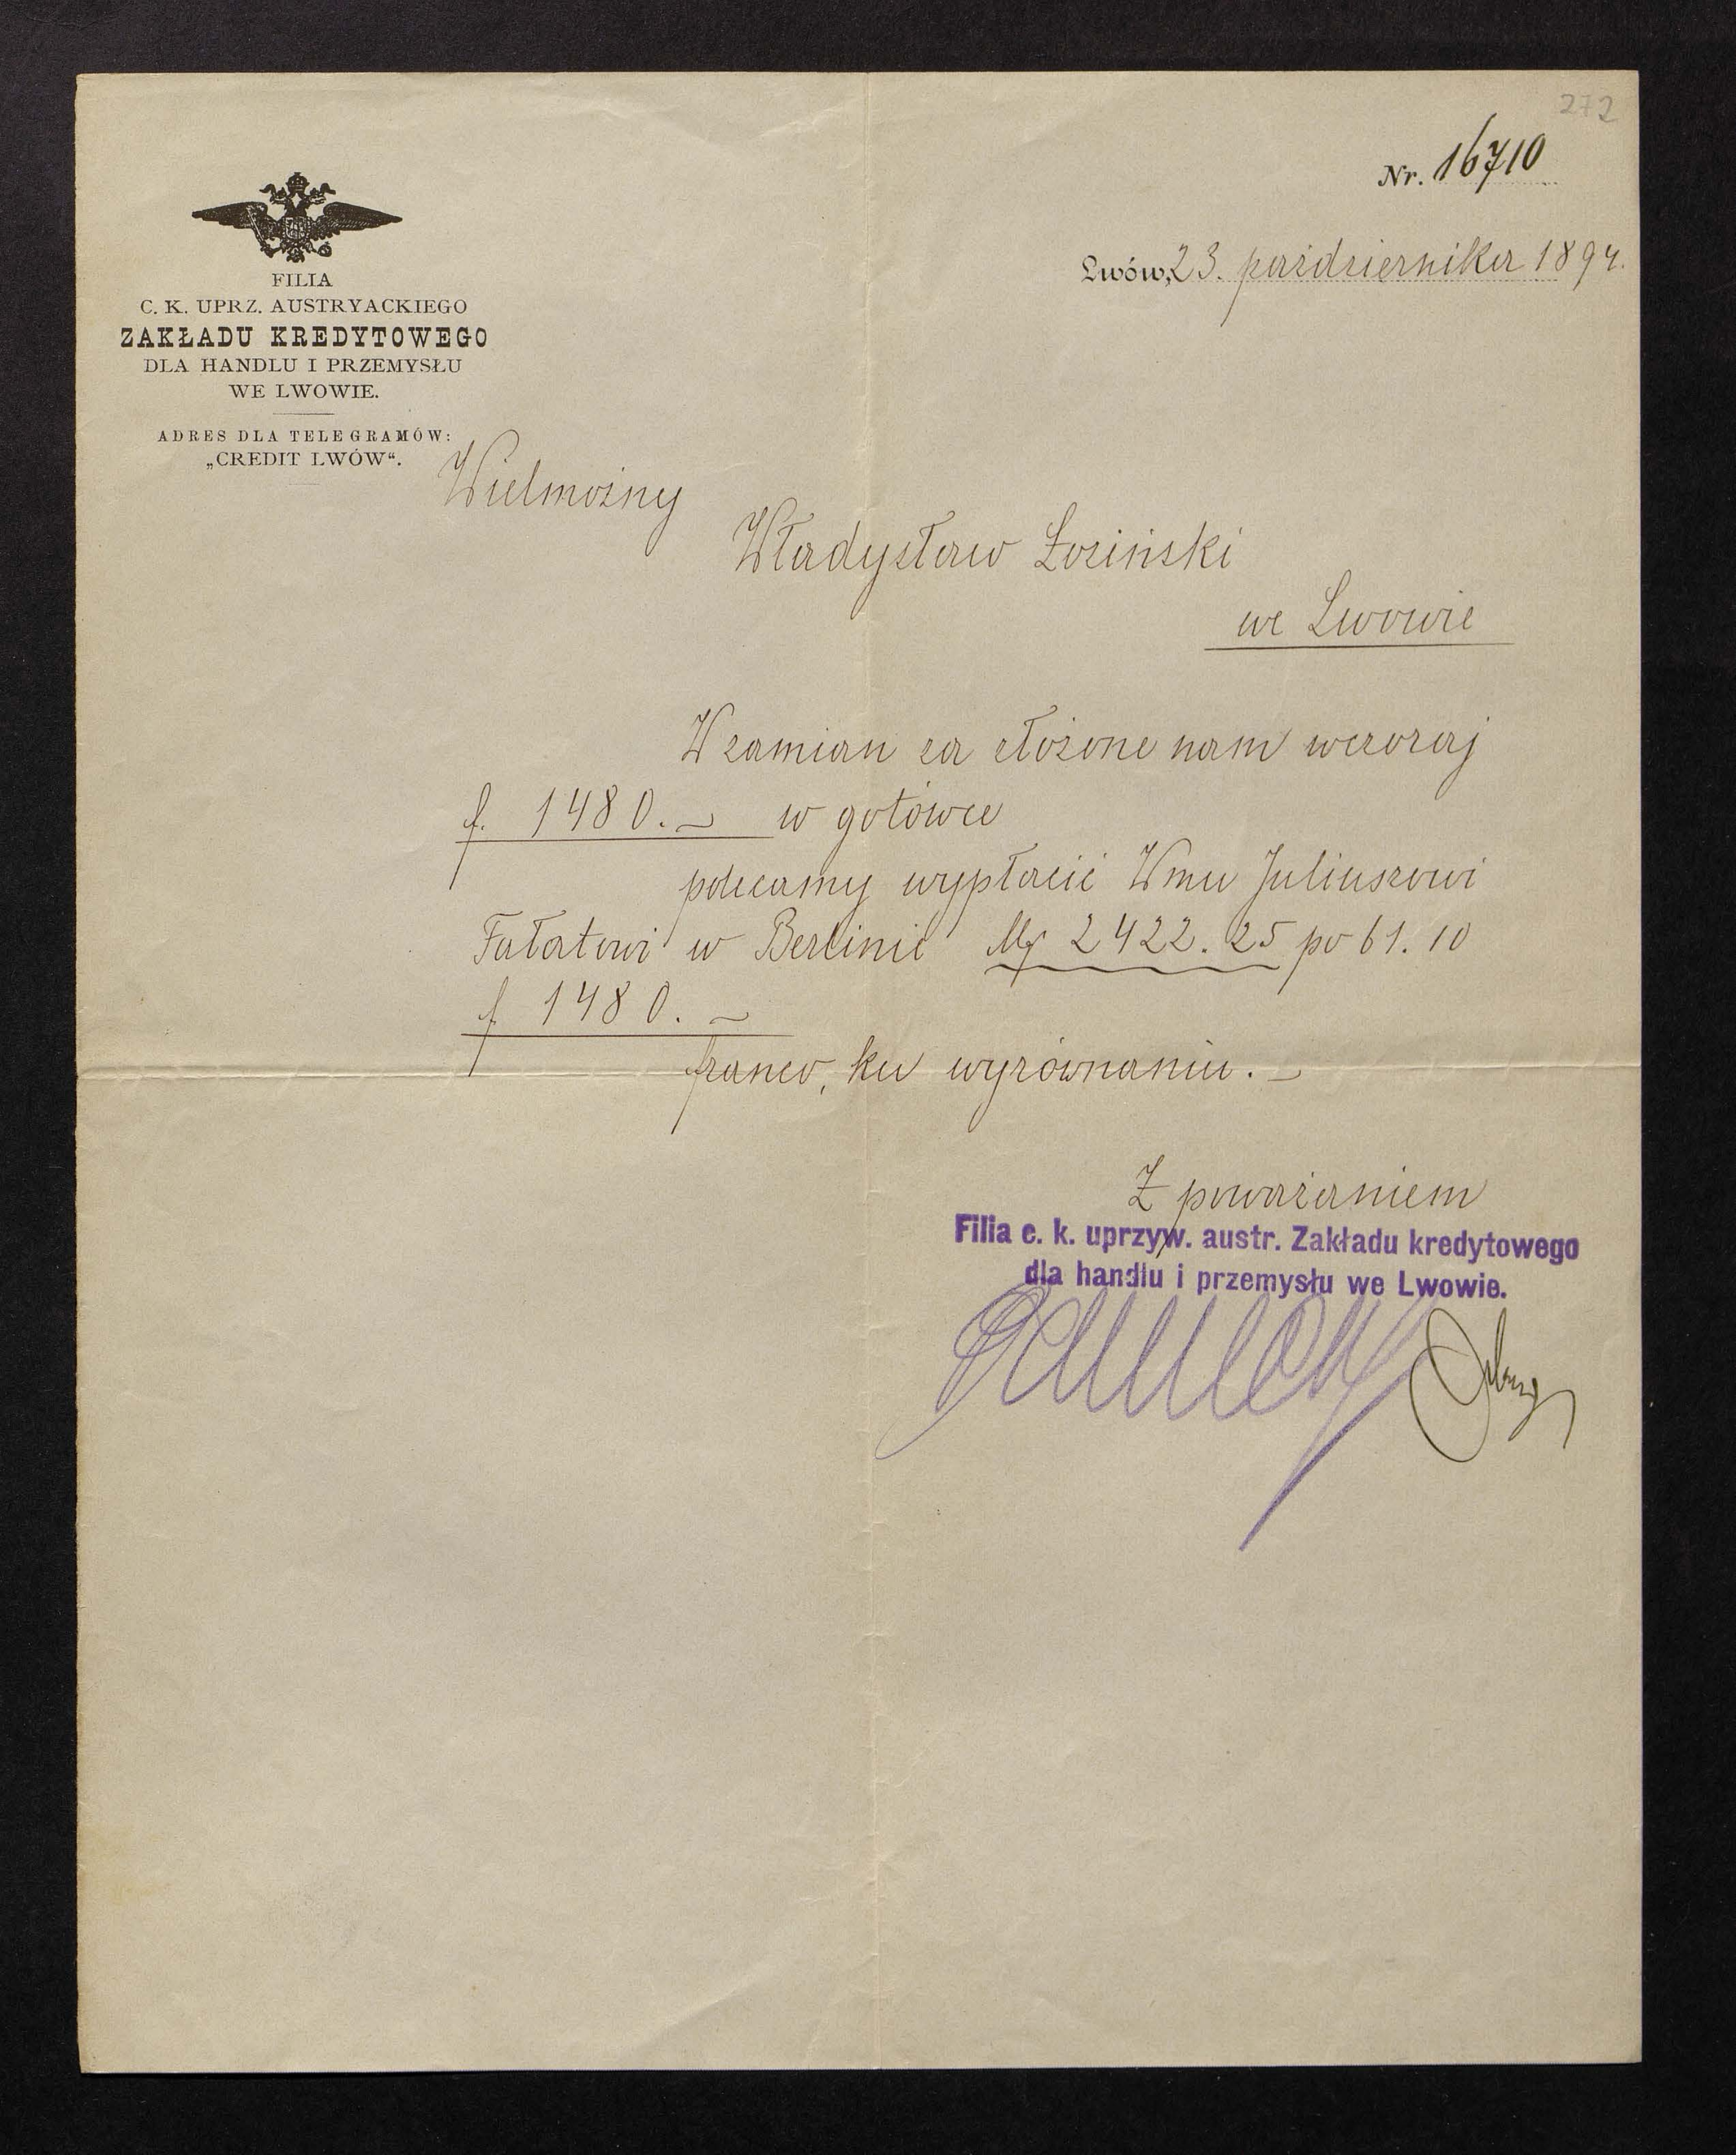 272
Nr. 16710
Lwów, 23. października 1894.
FILIA
C. K. UPRZ. AUSTRYACKIEGO
ZAKŁADU KREDYTOWEGO
DLA HANDLU I PRZEMYSŁU
WE LWOWIE.
ADRES DLA TELEGRAMÓW:
„CREDIT LWÓW“.
Wielmożny
Władysław Łoziński
we Lwowie
W zamian za złożone nam wczoraj
f. 1480.— w gotówce
polecamy wypłacić Wmu Juliuszowi
Fałatowi w Berlinie Mk 2422.25 po 61.10
f 1480.—
franco, ku wyrównaniu.—
Z poważaniem
Filia c. k. uprzyw. austr. Zakładu kredytowego
dla handlu i przemysłu we Lwowie.